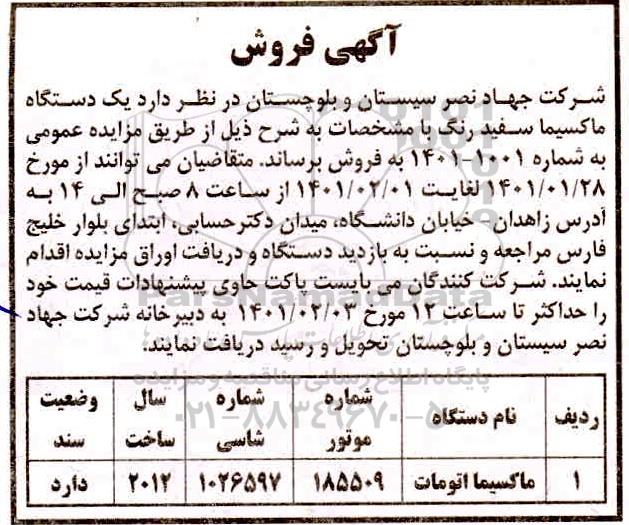 آگهی فروش
شرکت جهاد نصر سیستان و بلوچستان در نظر دارد یک دستگاه
ماکسیما سفید رنگ با مشخصات به شرح ذیل از طریق مزایده عمومی
به شماره ۱۰۰۱-۱۴۰۱ به فروش برساند. متقاضیان می توانند از مورخ
۱۴۰۱/۰۱/۲۸ لغایت ۱۴۰۱/۰۲/۰۱ از ساعت ۸ صبح الی ۱۴ به
آدرس زاهدان - خیابان دانشگاه، میدان دکترحسابی، ابتدای بلوار خلیج
فارس مراجعه و نسبت به بازدید دستگاه و دریافت اوراق مزایده اقدام
نمایند. شرکت کنندگان می بایست پاکت حاوی پیشنهادات قیمت خود
را حداکثر تا ساعت ۱۲ مورخ ۱۴۰۱/۰۲/۰۳ به دبیرخانه شرکت جهاد
نصر سیستان و بلوچستان تحویل و رسید دریافت نمایند.
ParsNamadData
پایگاه اطلاع رسانی مناقصه و مزایده
۰۲۱-۸۸۳۴۹۶۷۰-۵
ردیف نام دستگاه شماره موتور شماره شاسی سال ساخت وضعیت سند
۱ ماکسیما اتومات ۱۸۵۵۰۹ ۱۰۲۶۵۹۷ ۲۰۱۲ دارد